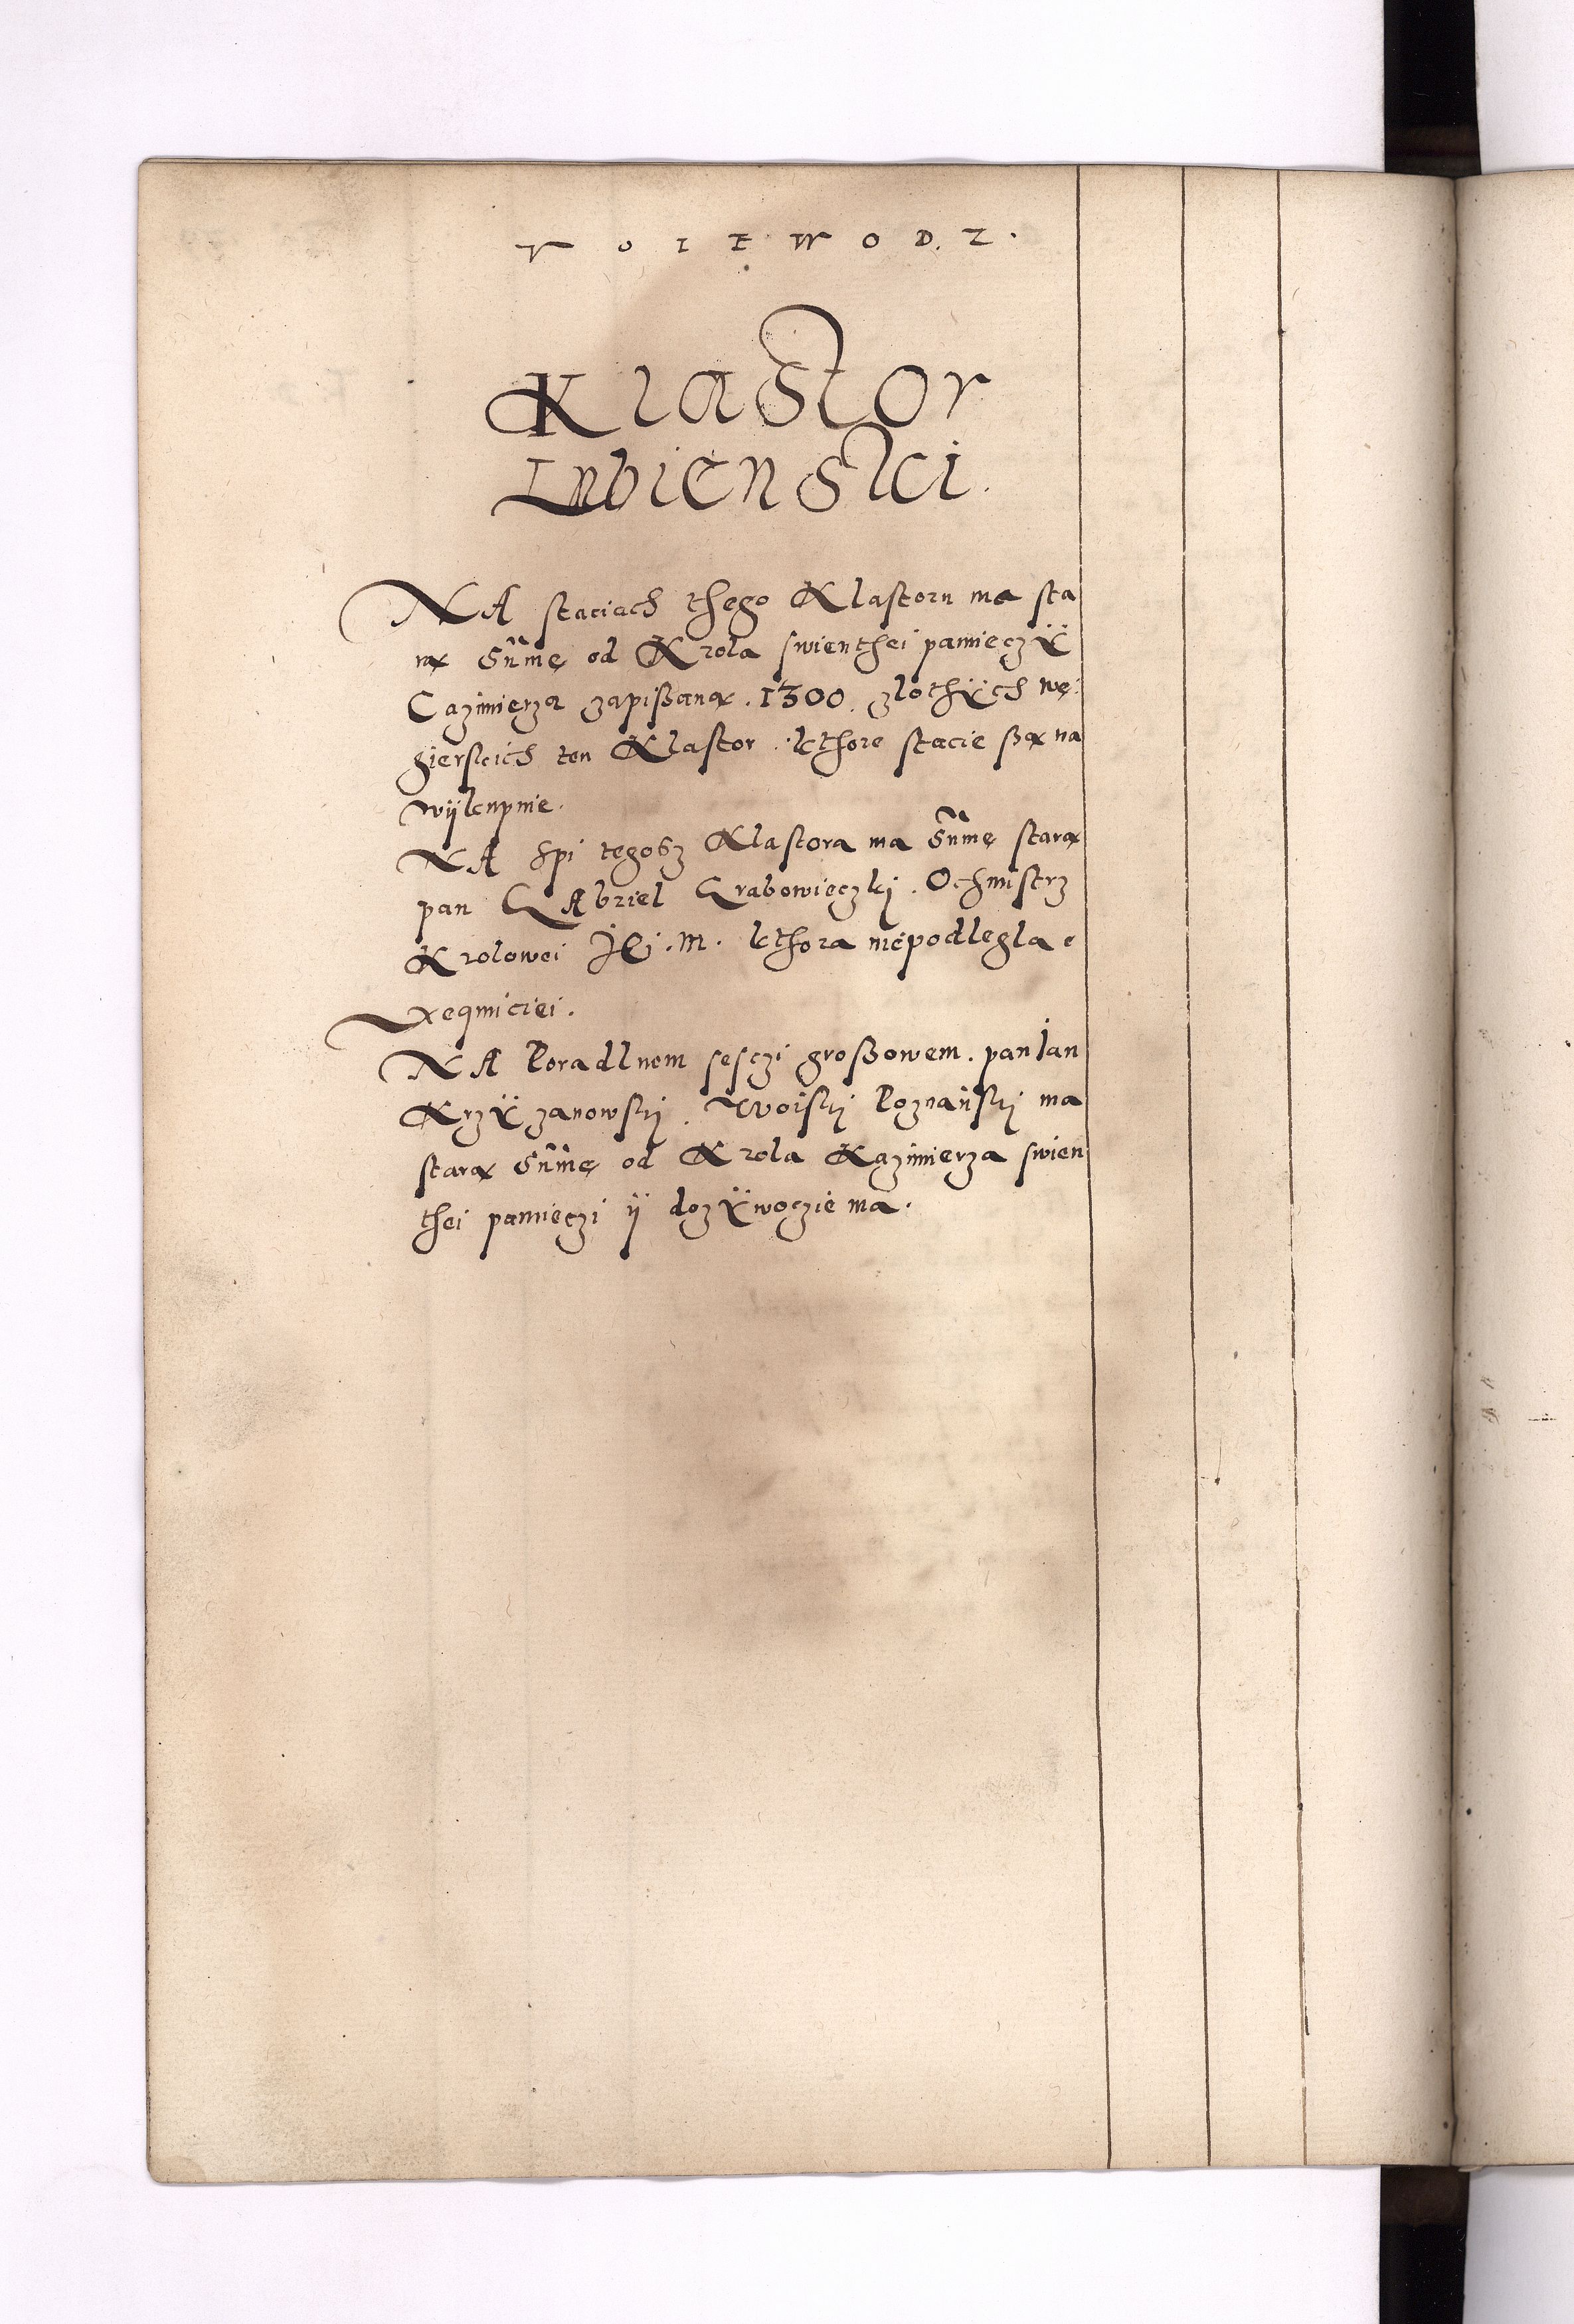 V O I E W O D Z.
Klastor
Lubienski.
NA staciach thego Klastoru ma sta
rą Sūmę od Krola swienthei pamięczÿ
Cazimierza zapißaną. 1300. zlothÿch wę
gierskich ten Klastor. kthore stacie ßą na
wÿkupnie.
NA Spi tegosz Klastora ma Sūmę starą
pan GAbriel Grabowieczkj. Ochmistrz
Krolowei Jej. M. kthora niepodlegla e
xequuciei.
NA Poradlnem sesczi großowem. pan Jan
Krzÿzanowskj. Woiskj Poznańskj ma
starą Sūmę od Krola Kazimierza swien
thei pamięczi ÿ dozÿwoczie ma.